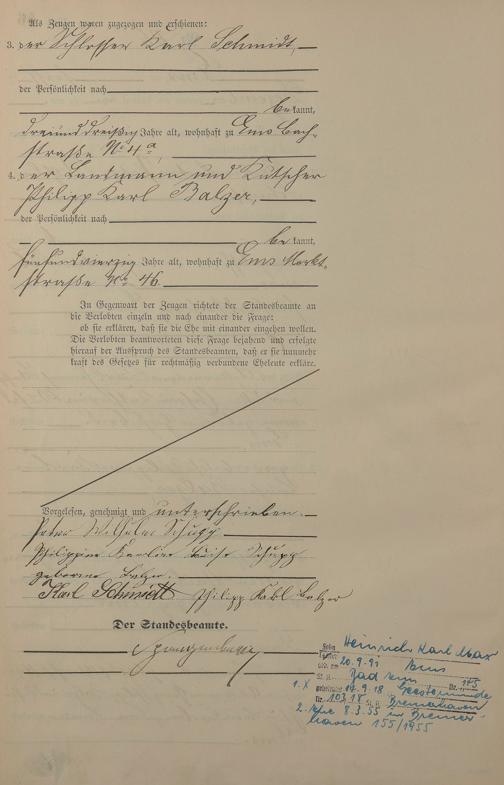 Als Zeugen waren zugezogen und erschienen:
3. der Schlosser Karl Schmidt,
der Persönlichkeit nach
bekannt,
dreiunddreißig Jahre alt, wohnhaft zu Ems Bach-
straße No 4a,
4. der Landmann und Kutscher
Philipp Karl Balzer,
der Persönlichkeit nach
bekannt,
fünfundvierzig Jahre alt, wohnhaft zu Ems Markt-
straße No 46.
In Gegenwart der Zeugen richtete der Standesbeamte an
die Verlobten einzeln und nach einander die Frage:
ob sie erklären, daß sie die Ehe mit einander eingehen wollen.
Die Verlobten beantworteten diese Frage bejahend und erfolgte
hierauf der Ausspruch des Standesbeamten, daß er sie nunmehr
kraft des Gesetzes für rechtmäßig verbundene Eheleute erkläre.
Vorgelesen, genehmigt und unterschrieben.
Peter Wilhelm Schupp
Philippine Karline Luise Schupp
geborene Balzer.
Karl Schmidt Philipp Karl Balzer
Der Standesbeamte.
Heinrich Karl Max
20.9.91 Ems
Bad Ems Nr. 145
1. X 14.9.18 Geestemünde
Nr. 103/18 Bremerhaven
2. Ehe 8.3.55 in Bremer-
haven 155/1955